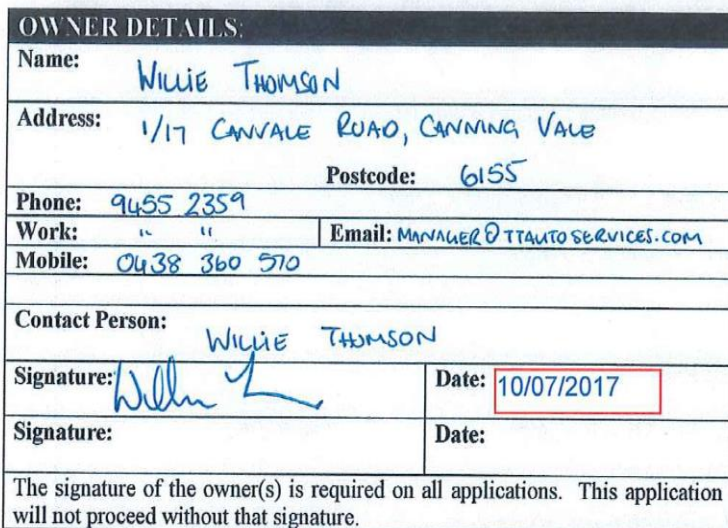 OWNER DETAILS:
Name: WILLIE THOMSON
Address: 1/17 CANVALE ROAD, CANNING VALE
Postcode: 6155
Phone: 9455 2359
Work: " " Email: MANAGER@TTAUTOSERVICES.COM
Mobile: 0438 360 570
Contact Person: WILLIE THOMSON
Signature: Date: 10/07/2017
Signature: Date:
The signature of the owner(s) is required on all applications. This application
will not proceed without that signature.